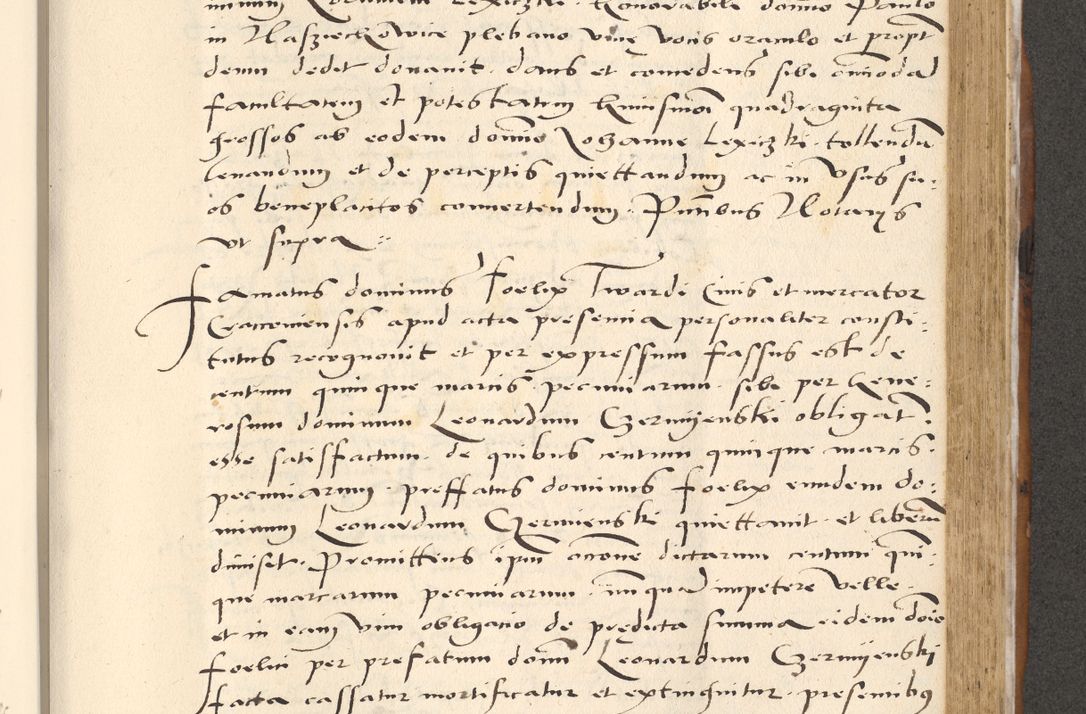 in Naszyechowice plebano vive vocis oraculo et propt
demu dedit donavit. dans et concedens sibi omnioda
facultatem et potestatem huiusmoi quadraginta
grossos ab eodem domno Johanne Lexiczki. tollendu
levandum et de perceptis quiettandum ac in usus su-
os beneplacitos convertendum. Pntibus Notarijs
ut supra.
Famatus dominus Foelix Twardi Civis et mercator
Cracoviensis apud acta presentia personaliter consti-
tutus recognovit et per expressum fassus est de
centum quinque marcis pecuniarum. sibi per Gene-
rosum dominum Leonardum Czermyenski obligat.
esse satisfactum. de quibus centum quinque marcis.
pecuniarum. preffatus dominus Foelix eundem do-
minum Leonardum Czermienski quiettavit. et liberu
dimisit. Promittens ipm occone dictarum centum qui-
que marcarum pecuniarum. nunqua impetere velle.
et in eam vim obligacio de predicta summa eidem doio
Foelici per prefatum domn Leonardum Czermyenski
facta cassatur mortificatur et extinguitur. presentibus